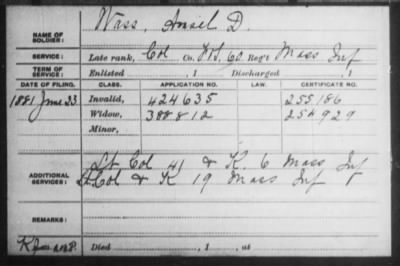 NAME OF SOLDIER: Wass, Ansel D.
SERVICE: Late rank, Col Co. F&S, 60 Reg't Mass Inf
TERM OF SERVICE: Enlisted , 1 Discharged , 1
DATE OF FILING. CLASS. APPLICATION NO. LAW. CERTIFICATE NO.
1881 June 23 Invalid, 424635 255186
Widow, 388812 254929
Minor,
ADDITIONAL SERVICES: Lt Col 41 & K. 6 Mass Inf
Lt Col & K 19 Mass Inf
REMARKS:
Died , 1 , at